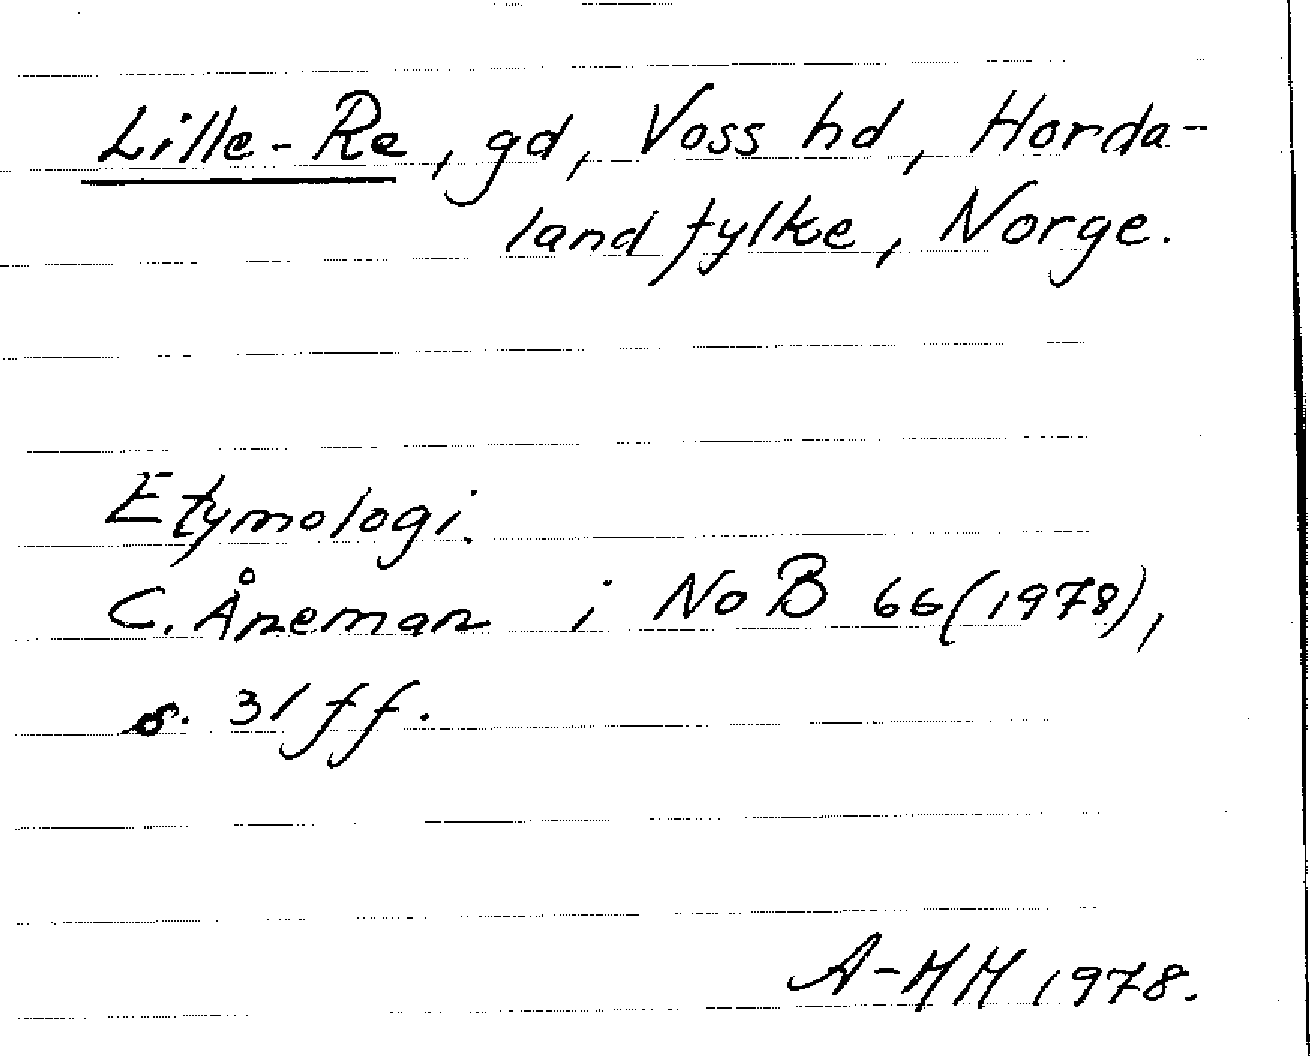 Lille-Re, gd, Voss hd, Horda-
land fylke, Norge.
Etymologi.
C. Åneman i NoB 66(1978),
s. 31 ff.
A-MH 1978.